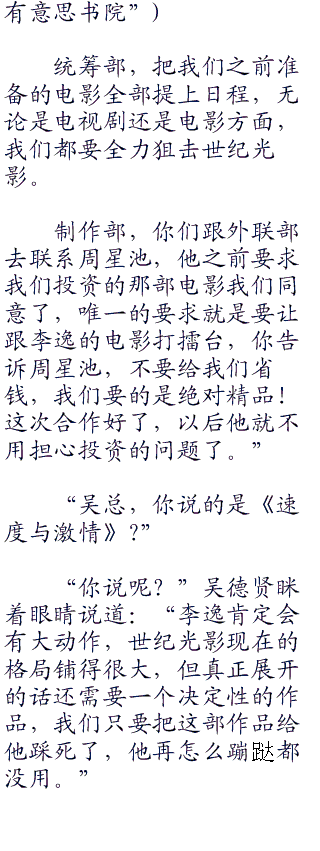 有意思书院”）
统筹部，把我们之前准
备的电影全部提上日程，无
论是电视剧还是电影方面，
我们都要全力狙击世纪光
影。
制作部，你们跟外联部
去联系周星池，他之前要求
我们投资的那部电影我们同
意了，唯一的要求就是要让
跟李逸的电影打擂台，你告
诉周星池，不要给我们省
钱，我们要的是绝对精品！
这次合作好了，以后他就不
用担心投资的问题了。”
“吴总，你说的是《速
度与激情》？”
“你说呢？”吴德贤眯
着眼睛说道：“李逸肯定会
有大动作，世纪光影现在的
格局铺得很大，但真正展开
的话还需要一个决定性的作
品，我们只要把这部作品给
他踩死了，他再怎么蹦跶都
没用。”